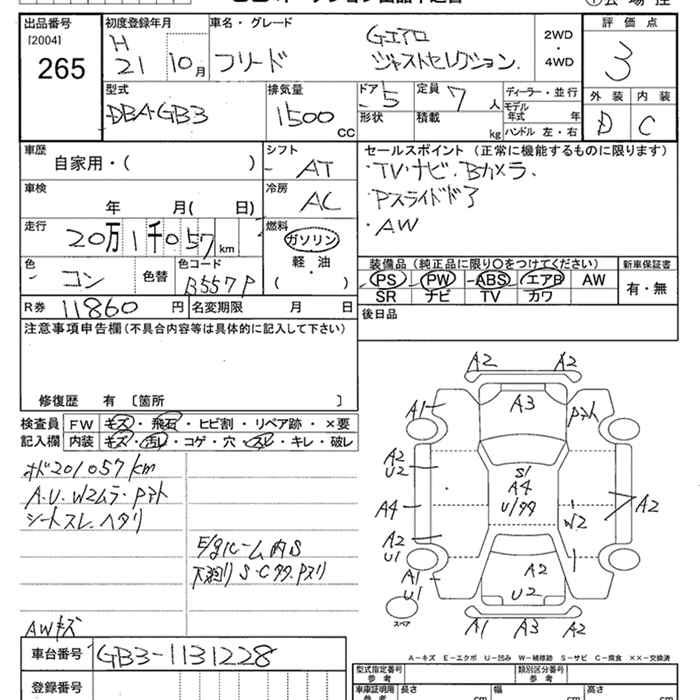 出品番号 初度登録年月 車名・グレード 評価点
[2004] H フリード Gエアロ 2WD
265 21 10月 ジャストセレクション. 4WD 3
外装 内装
D C
型式 排気量 ドア 5 定員 7人 ディーラー・並行
DBA-GB3 1500 cc 形状 積載 kg モデル年式 年
ハンドル 左・右
車歴 シフト セールスポイント (正常に機能するものに限ります)
自家用・( ) AT ・TV・ナビ・Bカメラ.
車検 冷房 ・Pスライドドア
年 月( 日) AC ・AW
走行 燃料
20万1千057km ガソリン
軽・油
( )
色 色替 色コード
コン B557P
装備品 (純正品に限り○をつけてください) 新車保証書
PS PW ABS エアB AW 有・無
SR ナビ TV カワ
R券 11860円 名変期限 月 日 後日品
注意事項申告欄 (不具合内容等は具体的に記入して下さい)
修復歴 有 〔箇所 〕
検査員 FW キズ・飛石・ヒビ割・リペア跡・×要
記入欄 内装 キズ・汚レ・コゲ・穴・スレ・キレ・破レ
オド201057km
A.U.W2ムラ・Pアト
シートスレ.ヘタリ
E/gルーム内S
下廻り S・Cクサ.Pヌリ
AWキズ
A2 A2
A1 A3 Pアト
A2
U2
S1
A4
U/99
A4 W2 A2
A2
U1
A1
U1
A2
U2
スペア
A1 A3 A2
A-キズ E-エクボ U-凹み W-補修跡 S-サビ C-腐食 ××-交換済
車台番号 GB3-1131228
登録番号
型式指定番号 類別区分番号
車庫証明用 長さ 幅 高さ
参考 cm cm cm